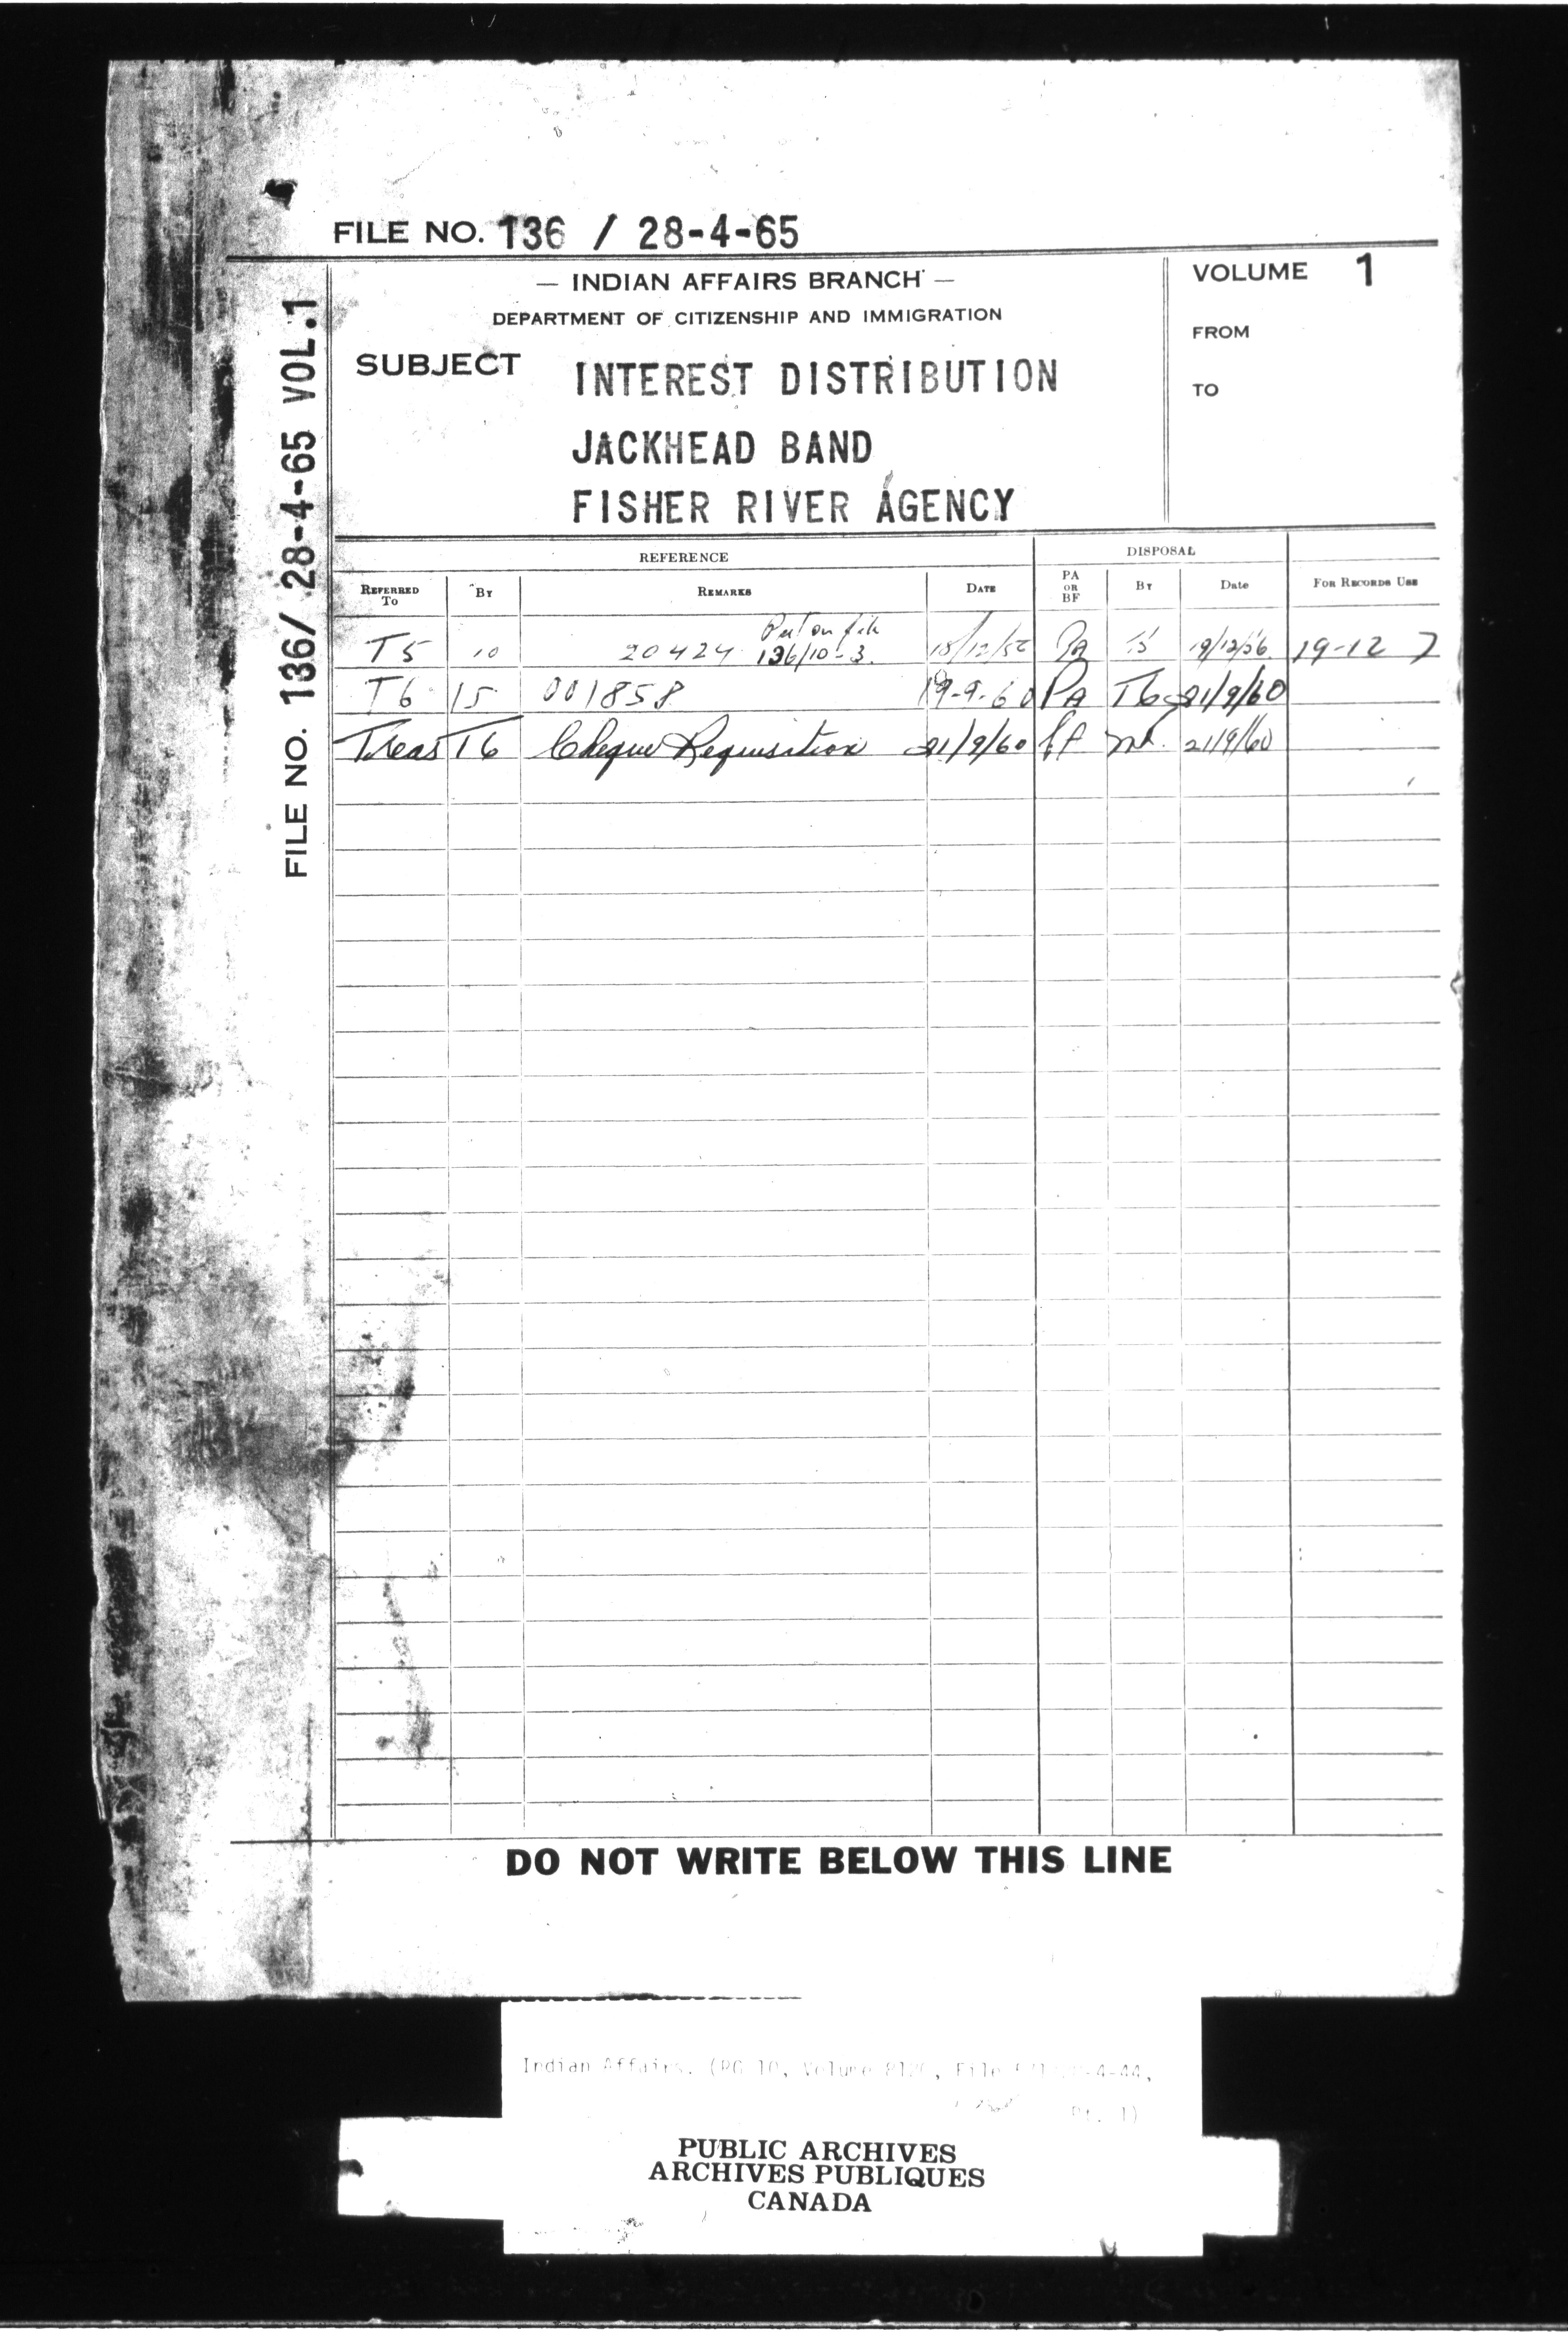 FILE NO. 136 / 28-4-65
— INDIAN AFFAIRS BRANCH —
DEPARTMENT OF CITIZENSHIP AND IMMIGRATION
SUBJECT INTEREST DISTRIBUTION
JACKHEAD BAND
FISHER RIVER AGENCY
VOLUME 1
FROM
TO
FILE NO. 136/ 28-4-65 VOL.1
REFERENCE DISPOSAL
REFERRED TO BY REMARKS DATE PA OR BF BY DATE FOR RECORDS USE
Put on file
T5 10 20424 136/10-3. 18/12/56 PA T5 19/12/56 19-12 7
T6 15 001858 19-9-60 PA T6 21/9/60
Treas T6 Cheque Requisition 21/9/60 21/9/60
DO NOT WRITE BELOW THIS LINE
Indian Affairs. (RG 10, Volume File 4-44,
Pt. 1)
PUBLIC ARCHIVES
ARCHIVES PUBLIQUES
CANADA